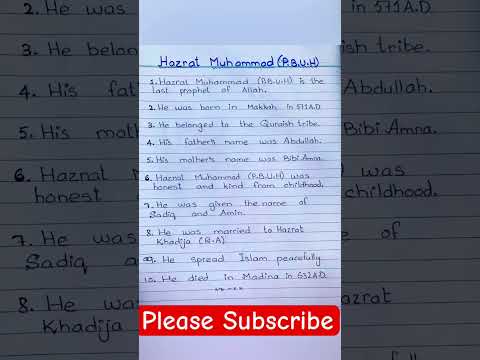 Hazrat Muhammad (P.B.U.H)
1. Hazrat Muhammad (P.B.U.H) is the
last prophet of Allah.
2. He was born in Makkah in 571A.D
3. He belonged to the Quraish tribe.
4. His father's name was Abdullah.
5. His mother's name was Bibi Amna.
6. Hazrat Muhammad (P.B.U.H) was
honest and kind from childhood.
7. He was given the name of
Sadiq and Amin.
8. He was married to Hazrat
Khadija (R.A)
9. He spread Islam peacefully
10. He died in Madina in 532A.D
Please Subscribe
2. He was
3. He belon
4. His fath
5. His mo
6. Hazrat
honest
7. He was
Sadiq a
8. He wa
Khadija
in 571A.D
sh tribe.
Abdullah.
Bibi Amna.
was
childhood.
of
azrat